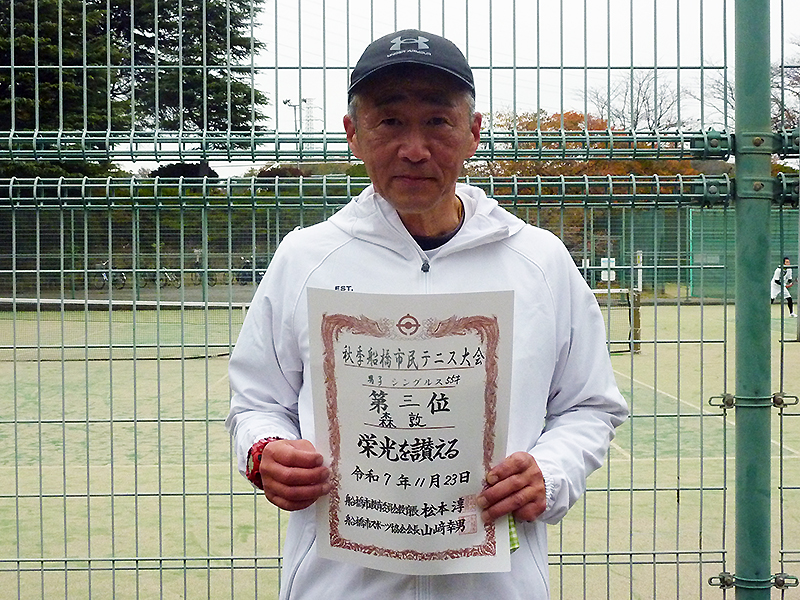 UNDER ARMOUR
EST.
秋季船橋市民テニス大会
男子 シングルス 55才
第三位
森 敦
栄光を讃える
令和7年11月23日
船橋市教育委員会教育長 松本 淳
船橋市スポーツ協会会長 山﨑幸男